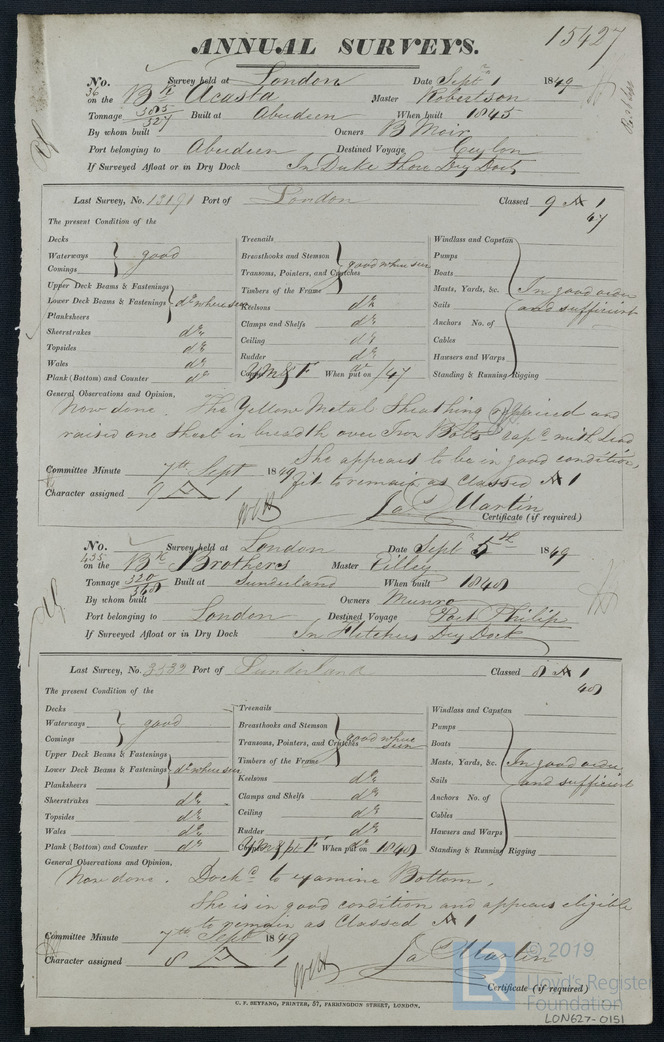 15427
ANNUAL SURVEYS.
No. 36 Survey held at London Date Sept 1 1849
on the Bk Acasta Master Robertson
Tonnage 385 327 Built at Aberdeen When built 1845
By whom built Owners B Moir
Port belonging to Aberdeen Destined Voyage Ceylon
If Surveyed Afloat or in Dry Dock In Duke Shore Dry Dock
Last Survey, No. 13191 Port of London Classed 9 A 1
47
The present Condition of the
Decks
Waterways good
Comings
Upper Deck Beams & Fastenings
Lower Deck Beams & Fastenings do where seen
Planksheers
Sheerstrakes do
Topsides do
Wales do
Plank (Bottom) and Counter do
Treenails
Breasthooks and Stemson
Transoms, Pointers, and Crutches good where seen
Timbers of the Frame
Keelsons do
Clamps and Shelfs do
Ceiling do
Rudder do
Copper YM & F When put on do /47
Windlass and Capstan
Pumps
Boats
Masts, Yards, &c. In good order
Sails and sufficient
Anchors No. of
Cables
Hawsers and Warps
Standing & Running Rigging
General Observations and Opinion,
Now done. The Yellow Metal Sheathing repaired and
raised one sheet in breadth over Iron Bolts capd with Lead
She appears to be in good condition,
fit to remain as Classed A 1
Committee Minute 7th Sept 1849
Character assigned 9 A 1
Jas Martin
Certificate (if required)
No. 435 Survey held at London Date Sept 5th 1849
on the Bk Brothers Master Tilley
Tonnage 320 368 Built at Sunderland When built 1840
By whom built Owners Munro
Port belonging to London Destined Voyage Port Philip
If Surveyed Afloat or in Dry Dock In Fletchers Dry Dock
Last Survey, No. 3533 Port of Sunderland Classed 8 A 1
48
The present Condition of the
Decks
Waterways good
Comings
Upper Deck Beams & Fastenings
Lower Deck Beams & Fastenings do where seen
Planksheers
Sheerstrakes do
Topsides do
Wales do
Plank (Bottom) and Counter do
Treenails
Breasthooks and Stemson
Transoms, Pointers, and Crutches good where seen
Timbers of the Frame
Keelsons do
Clamps and Shelfs do
Ceiling do
Rudder do
Copper YM & pt F When put on do 1848
Windlass and Capstan
Pumps
Boats
Masts, Yards, &c. In good order
Sails and sufficient
Anchors No. of
Cables
Hawsers and Warps
Standing & Running Rigging
General Observations and Opinion,
Now done. Dockd to examine Bottom.
She is in good condition and appears eligible
to remain as Classed A 1
Committee Minute 7th Sept 1849
Character assigned 8 A 1
Jas Martin
Certificate (if required)
C. F. SEYFANG, PRINTER, 57, FARRINGDON STREET, LONDON.
© 2019
Lloyd's Register
Foundation
LON627-0151